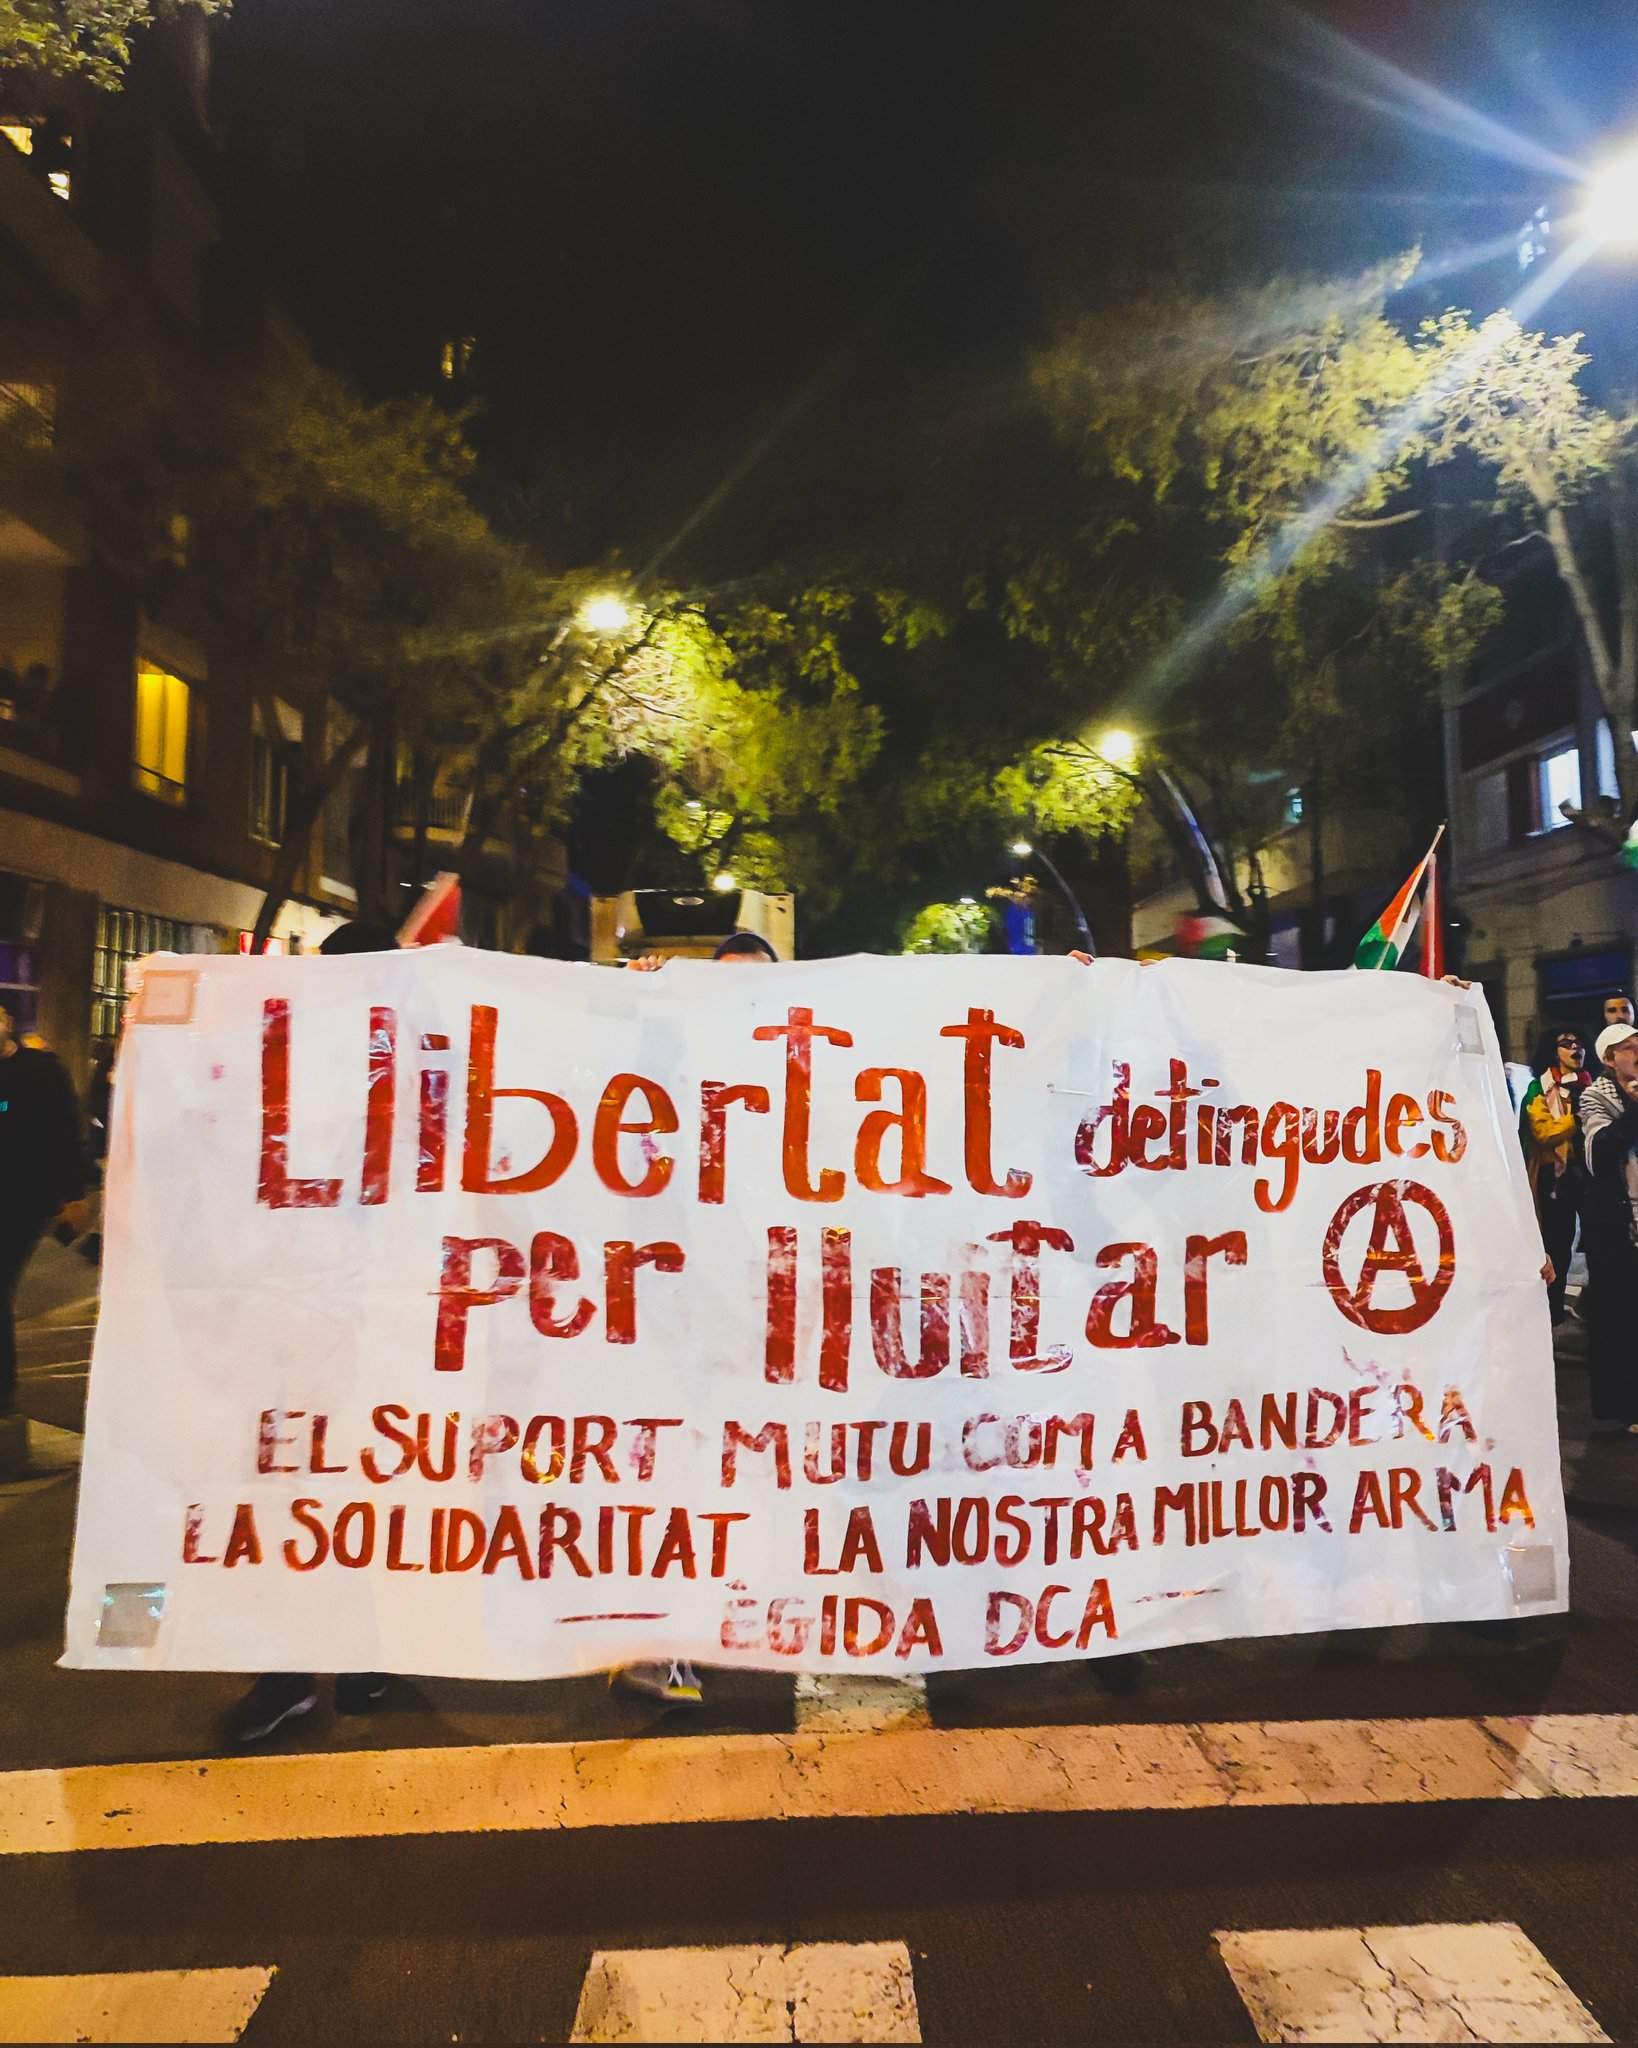 Llibertat detingudes
per lluitar Ⓐ
EL SUPORT MUTU COM A BANDERA,
LA SOLIDARITAT LA NOSTRA MILLOR ARMA
— ÈGIDA DCA —